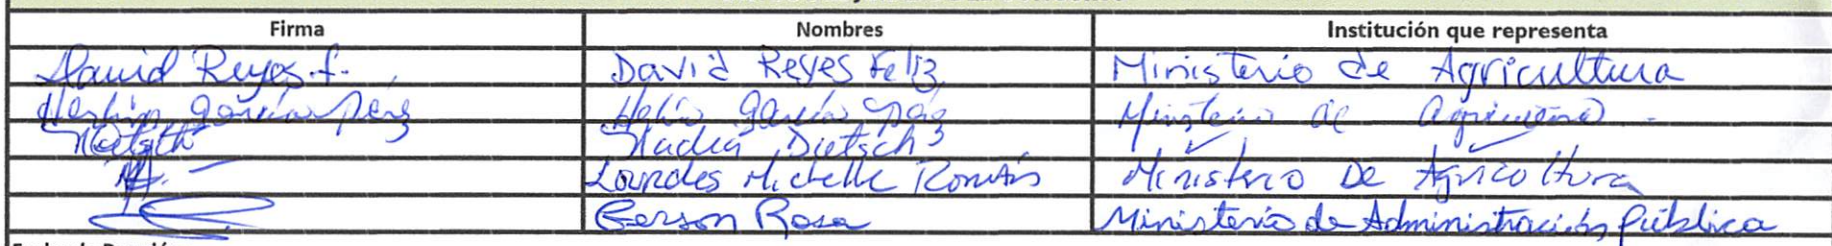 Firma Nombres Institución que representa
David Reyes f. David Reyes Feliz Ministerio de Agricultura
García Pérez García Ministerio de
Nadia Dietsch
Lourdes Michelle Román Ministerio De Agricoltura
Gerson Rosa Ministerio de Administración Pública